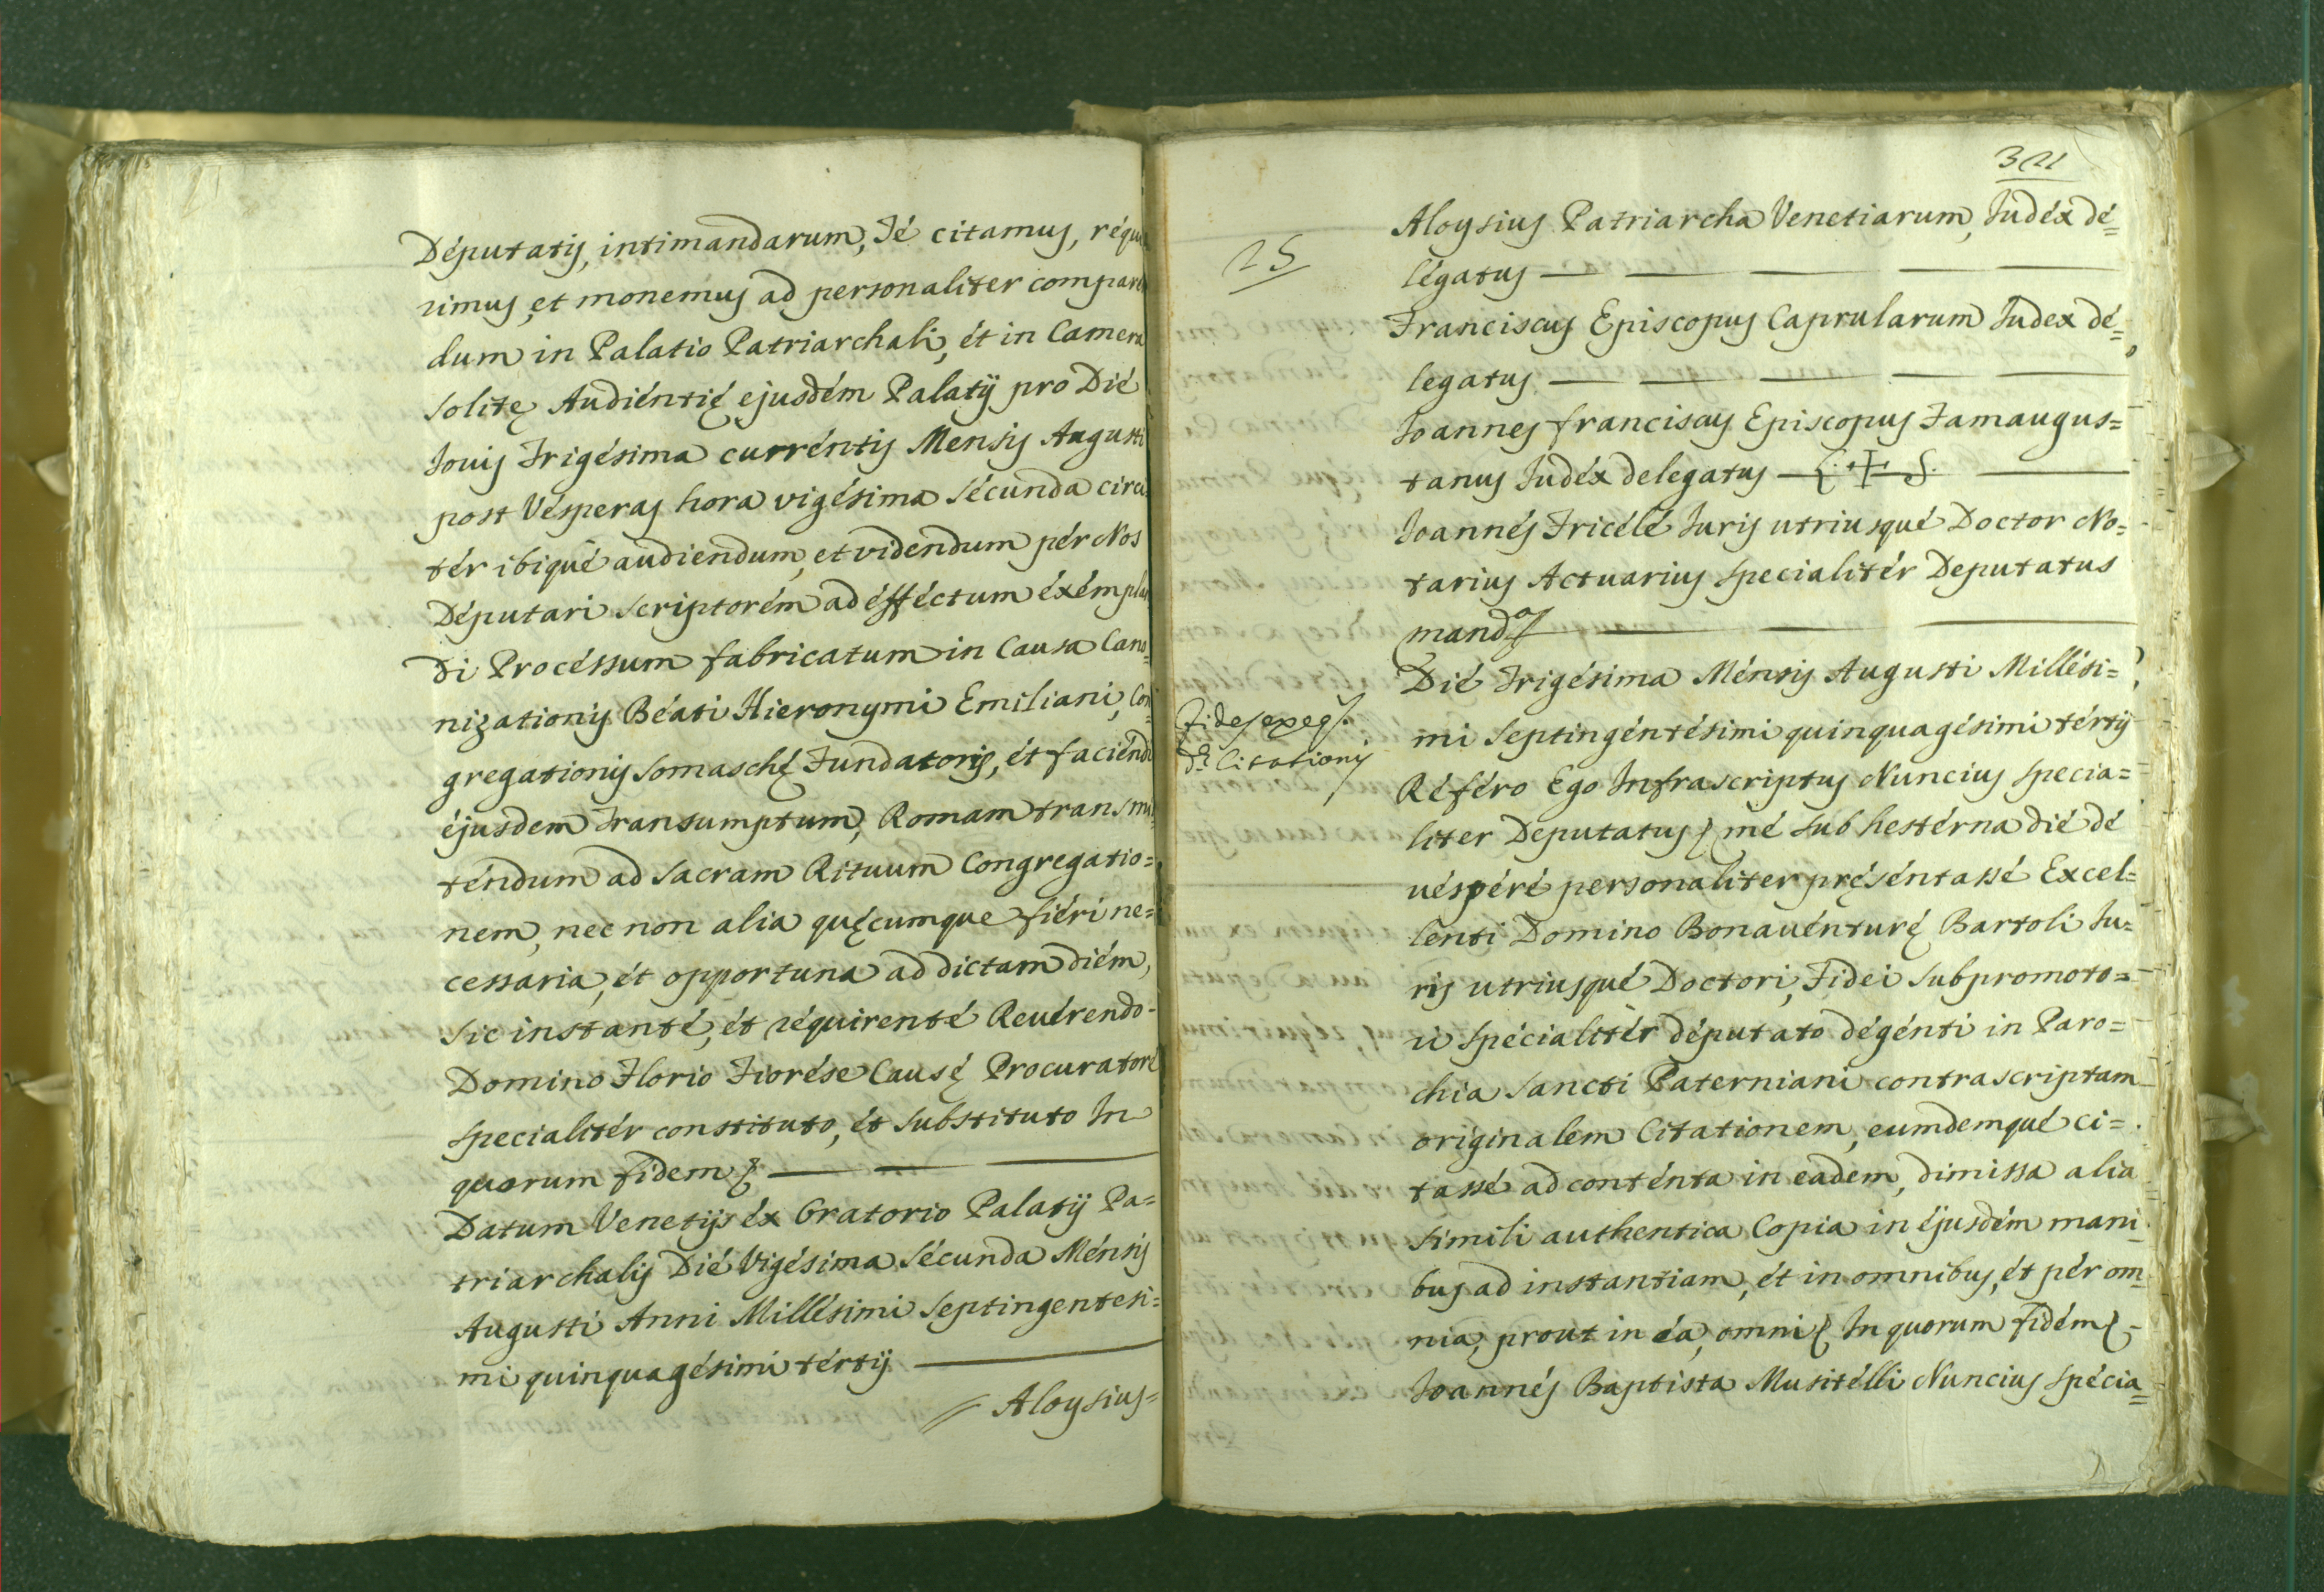 Députatis, intimandarum, Té citamus, réqui
rimus, et monemus ad personaliter comparen
dum in Palatio Patriarchali, ét in Camera
solitę Audiéntię ejusdém Palatÿ pro Dié
Jovis Trigésima curréntis Mensis Augusti
post Vésperas hora vigésima sécunda circi
tér ibiqué audiendum, et videndum pér Nos
Députari scriptorém ad éfféctum éxémplan
di Procéssum fabricatum in Causa Cano=
nizationis Béati Hieronymi Emiliani, Con=
gregationis Somaschę Fundatoris, ét faciéndi
éjusdem Transumptum, Romam transmit
téndum ad sacram Rituum Congregatio=
nem, nec non alia quęcumque fiéri ne=
cessaria, ét opportuna ad dictam diém,
sic instanté, ét réquirenté Revérendo-
Domino Florio Fiorése Causę Procuratoré
specialitér constituto, ét substituto In
quorum fidem &
Datum Venetijs éx Oratorio Palatÿ Pa=
triarchalis Dié Vigésima Sécunda Ménsis
Augusti Anni Millésimi Septingentesi=
mi quinquagésimi tértÿ
Aloysius=
321
25
Aloysius Patriarcha Venetiarum, Judéx dé=
légatus
Franciscus Episcopus Caprularum Judex dé=
legatus
Joannes franciscus Episcopus Famaugus=
tanus Judéx delegatus L. + S.
Joannés Tricélé Juris utriusqué Doctor No=
tarius Actuarius specialitér Deputatus
mand.
Dié Trigésima Ménsis Augusti Millési=
mi Septingéntésimi quinquagésimi tértÿ
Fides exeq.
d. Citationis
Référo Ego Infrascriptus Nuncius specia=
liter Deputatus, mé sub hestérna dié dé
véspéré personaliter pręséntassé Excel=
lenti Domino Bonavénturę Bartoli Ju=
ris utriusqué Doctori, Fidei Subpromoto=
ri spécialitér députato dégénti in Paro=
chia Sancti Paterniani contrascriptam
originalem Citationem, eumdemqué ci=
tassé ad conténta in eadem, dimissa alia
simili authentica Copia in éjusdém mani
bus ad instantiam, ét in omnibus, ét pér om
nia, prout in éa, omni & In quorum fidém &
Joannés Baptista Musitélli Nuncius spécia=